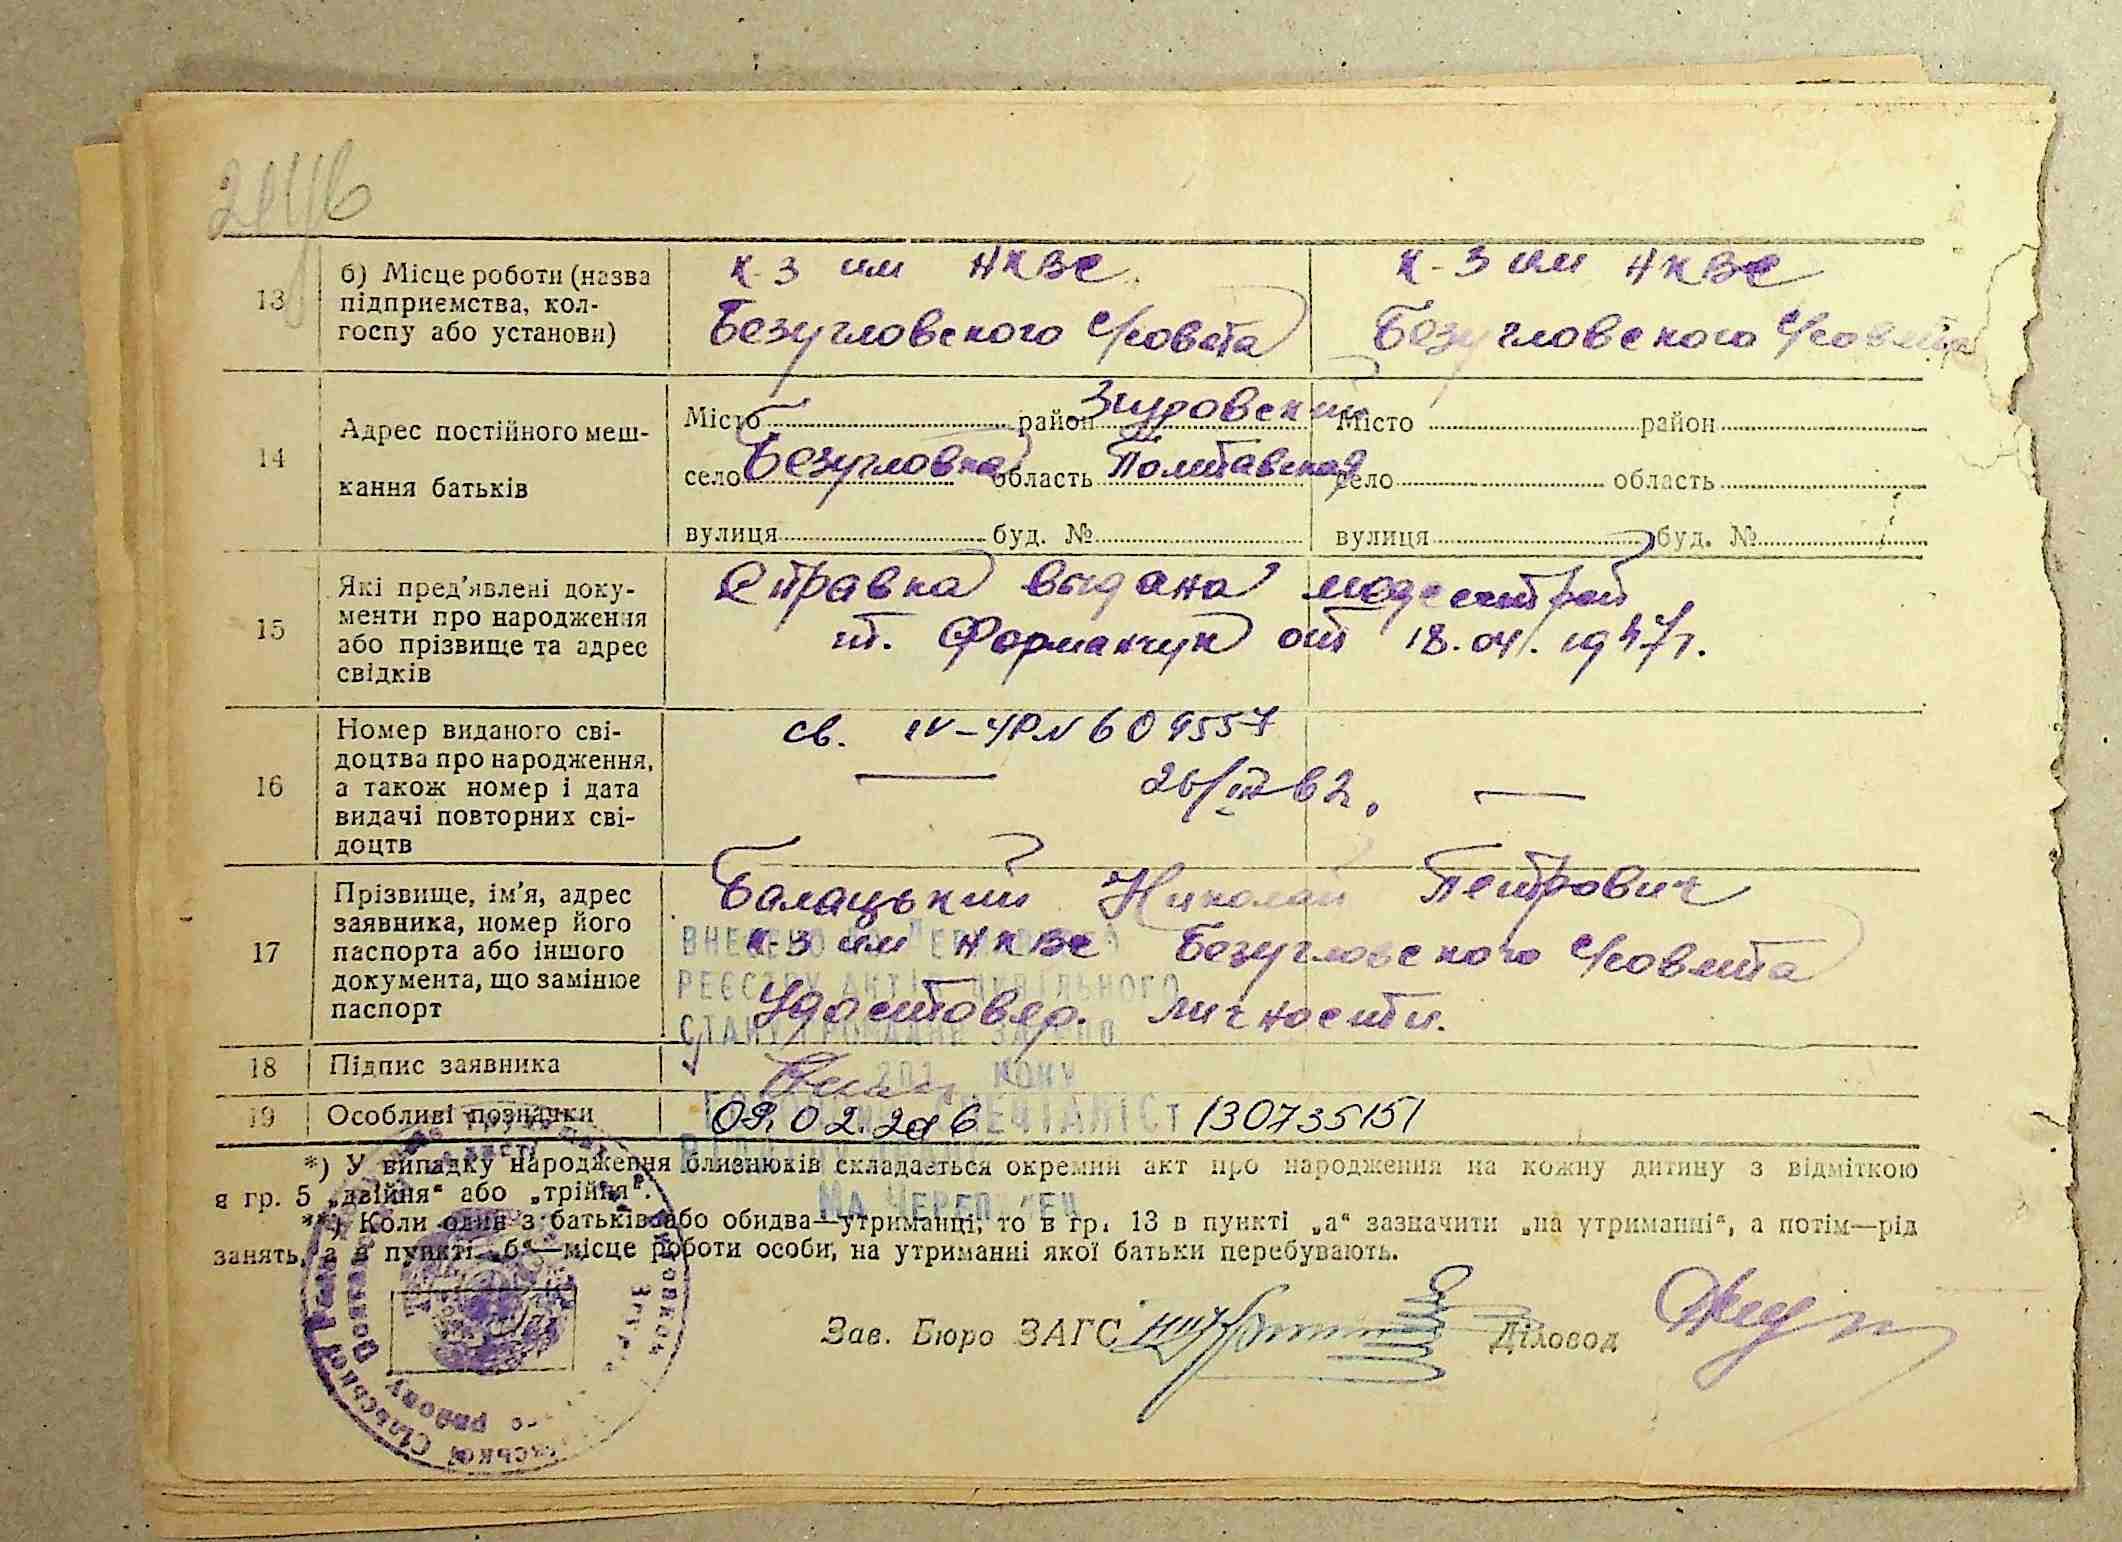 13
б) Місце роботи (назва
підприємства, кол-
госпу або установи)
к-з им НКВС
Безугловского С/совета
к-з им НКВС
Безугловского С/совета
14
Адрес постійного меш-
кання батьків
Місто район Згуровский
село Безугловка область Полтавская
вулиця буд. №
Місто район
село область
вулиця буд. №
15
Які пред'явлені доку-
менти про народження
або прізвище та адрес
свідків
Справка выдана медсестрой
т. Форманчук от 18.04.1947г.
16
Номер виданого сві-
доцтва про народження,
а також номер і дата
видачі повторних сві-
доцтв
св. IV-УР N 609557
62.
17
Прізвище, ім'я, адрес
заявника, номер його
паспорта або іншого
документа, що замінює
паспорт
Балацький Николай Петрович
к-з им НКВС Безугловского С/совета
Удостовер. личности.
ВНЕСЕНО ДО ДЕРЖАВНОГО
РЕЄСТРУ АКТІВ ЦИВІЛЬНОГО
СТАНУ ГРОМАДЯН ЗАГСПО
201 РОКУ
18
Підпис заявника
19
Особливі позначки
09.02.2016 130735151
ГОЛОВНИЙ СПЕЦІАЛІСТ
*) У випадку народження близнюків складається окремий акт про народження на кожну дитину з відміткою
в гр. 5 „двійня“ або „трійня“.
**) Коли один з батьків або обидва—утриманці, то в гр. 13 в пункті „а“ зазначити „на утриманні“, а потім—рід
занять, а в пункті „б“—місце роботи особи, на утриманні якої батьки перебувають.
Зав. Бюро ЗАГС
Діловод